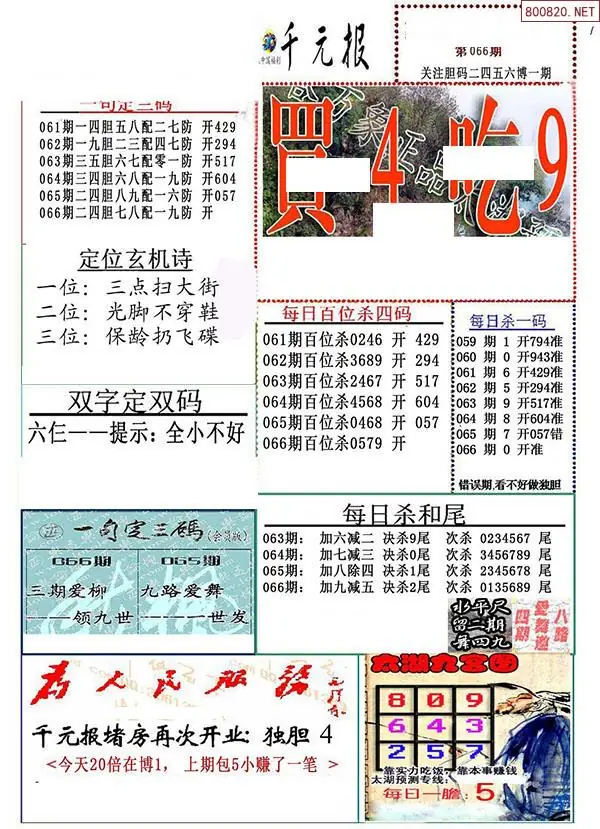 800820.NET
千元报
中国福彩
第066期
关注胆码二四五六博一期
一句定三码
061期一四胆五八配二七防 开429
062期一九胆二三配四七防 开294
063期三五胆六七配零一防 开517
064期三四胆六八配一九防 开604
065期二四胆九八配一六防 开057
066期二四胆七八配一九防 开
買4吃9
定位玄机诗
一位：三点扫大街
二位：光脚不穿鞋
三位：保龄扔飞碟
每日百位杀四码
061期百位杀0246 开 429
062期百位杀3689 开 294
063期百位杀2467 开 517
064期百位杀4568 开 604
065期百位杀0468 开 057
066期百位杀0579 开
每日杀一码
059 期 1 开794准
060 期 0 开943准
061 期 6 开429准
062 期 5 开294准
063 期 9 开517准
064 期 8 开604准
065 期 7 开057错
066 期 0 开准
错误期,看不好做独胆
双字定双码
六仨——提示：全小不好
一句定三碼(会员版)
066期
三期爱柳
——领九世
065期
九路爱舞
————世发
每日杀和尾
063期： 加六减二 决杀9尾 次杀 0234567 尾
064期： 加七减三 决杀0尾 次杀 3456789 尾
065期： 加八除四 决杀1尾 次杀 2345678 尾
066期： 加九减五 决杀2尾 次杀 0135689 尾
水平尺
留二期
舞四九
八路
爱舞邀
四期
为人民服务
千元报堵房再次开业：独胆 4
<今天20倍在博1， 上期包5小赚了一笔 >
太湖九宫图
8 0 9
6 4 3
2 5 7
靠实力吃饭，靠本事赚钱
太湖预测专线：
每日一胆：5